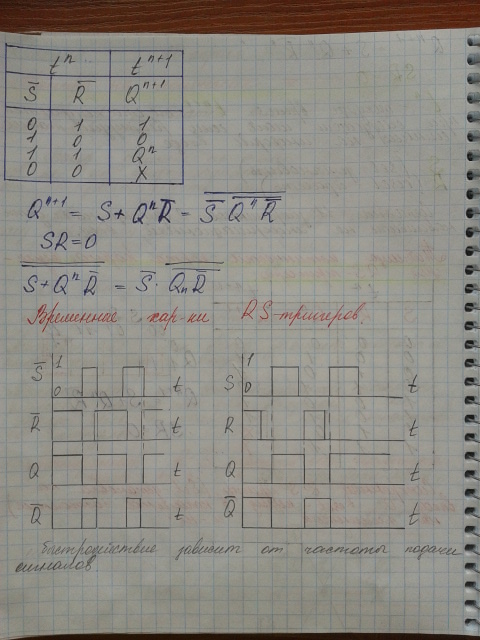 tⁿ tⁿ⁺¹
S̅ R̅ Qⁿ⁺¹
0 1 1
1 0 0
1 1 Qⁿ
0 0 X
Qⁿ⁺¹ = S + QⁿR̅ = \overline{S̅ \overline{Qⁿ R̅}}
SR = 0
\overline{S + Qⁿ R̅} = S̅ · \overline{Qₙ R̅}
Временные хар-ки RS-тригеров
S̅ 1 0 t
R̅ t
Q t
Q̅ t
S 1 0 t
R t
Q t
Q̅ t
быстродействие зависит от частоты подачи
сигналов